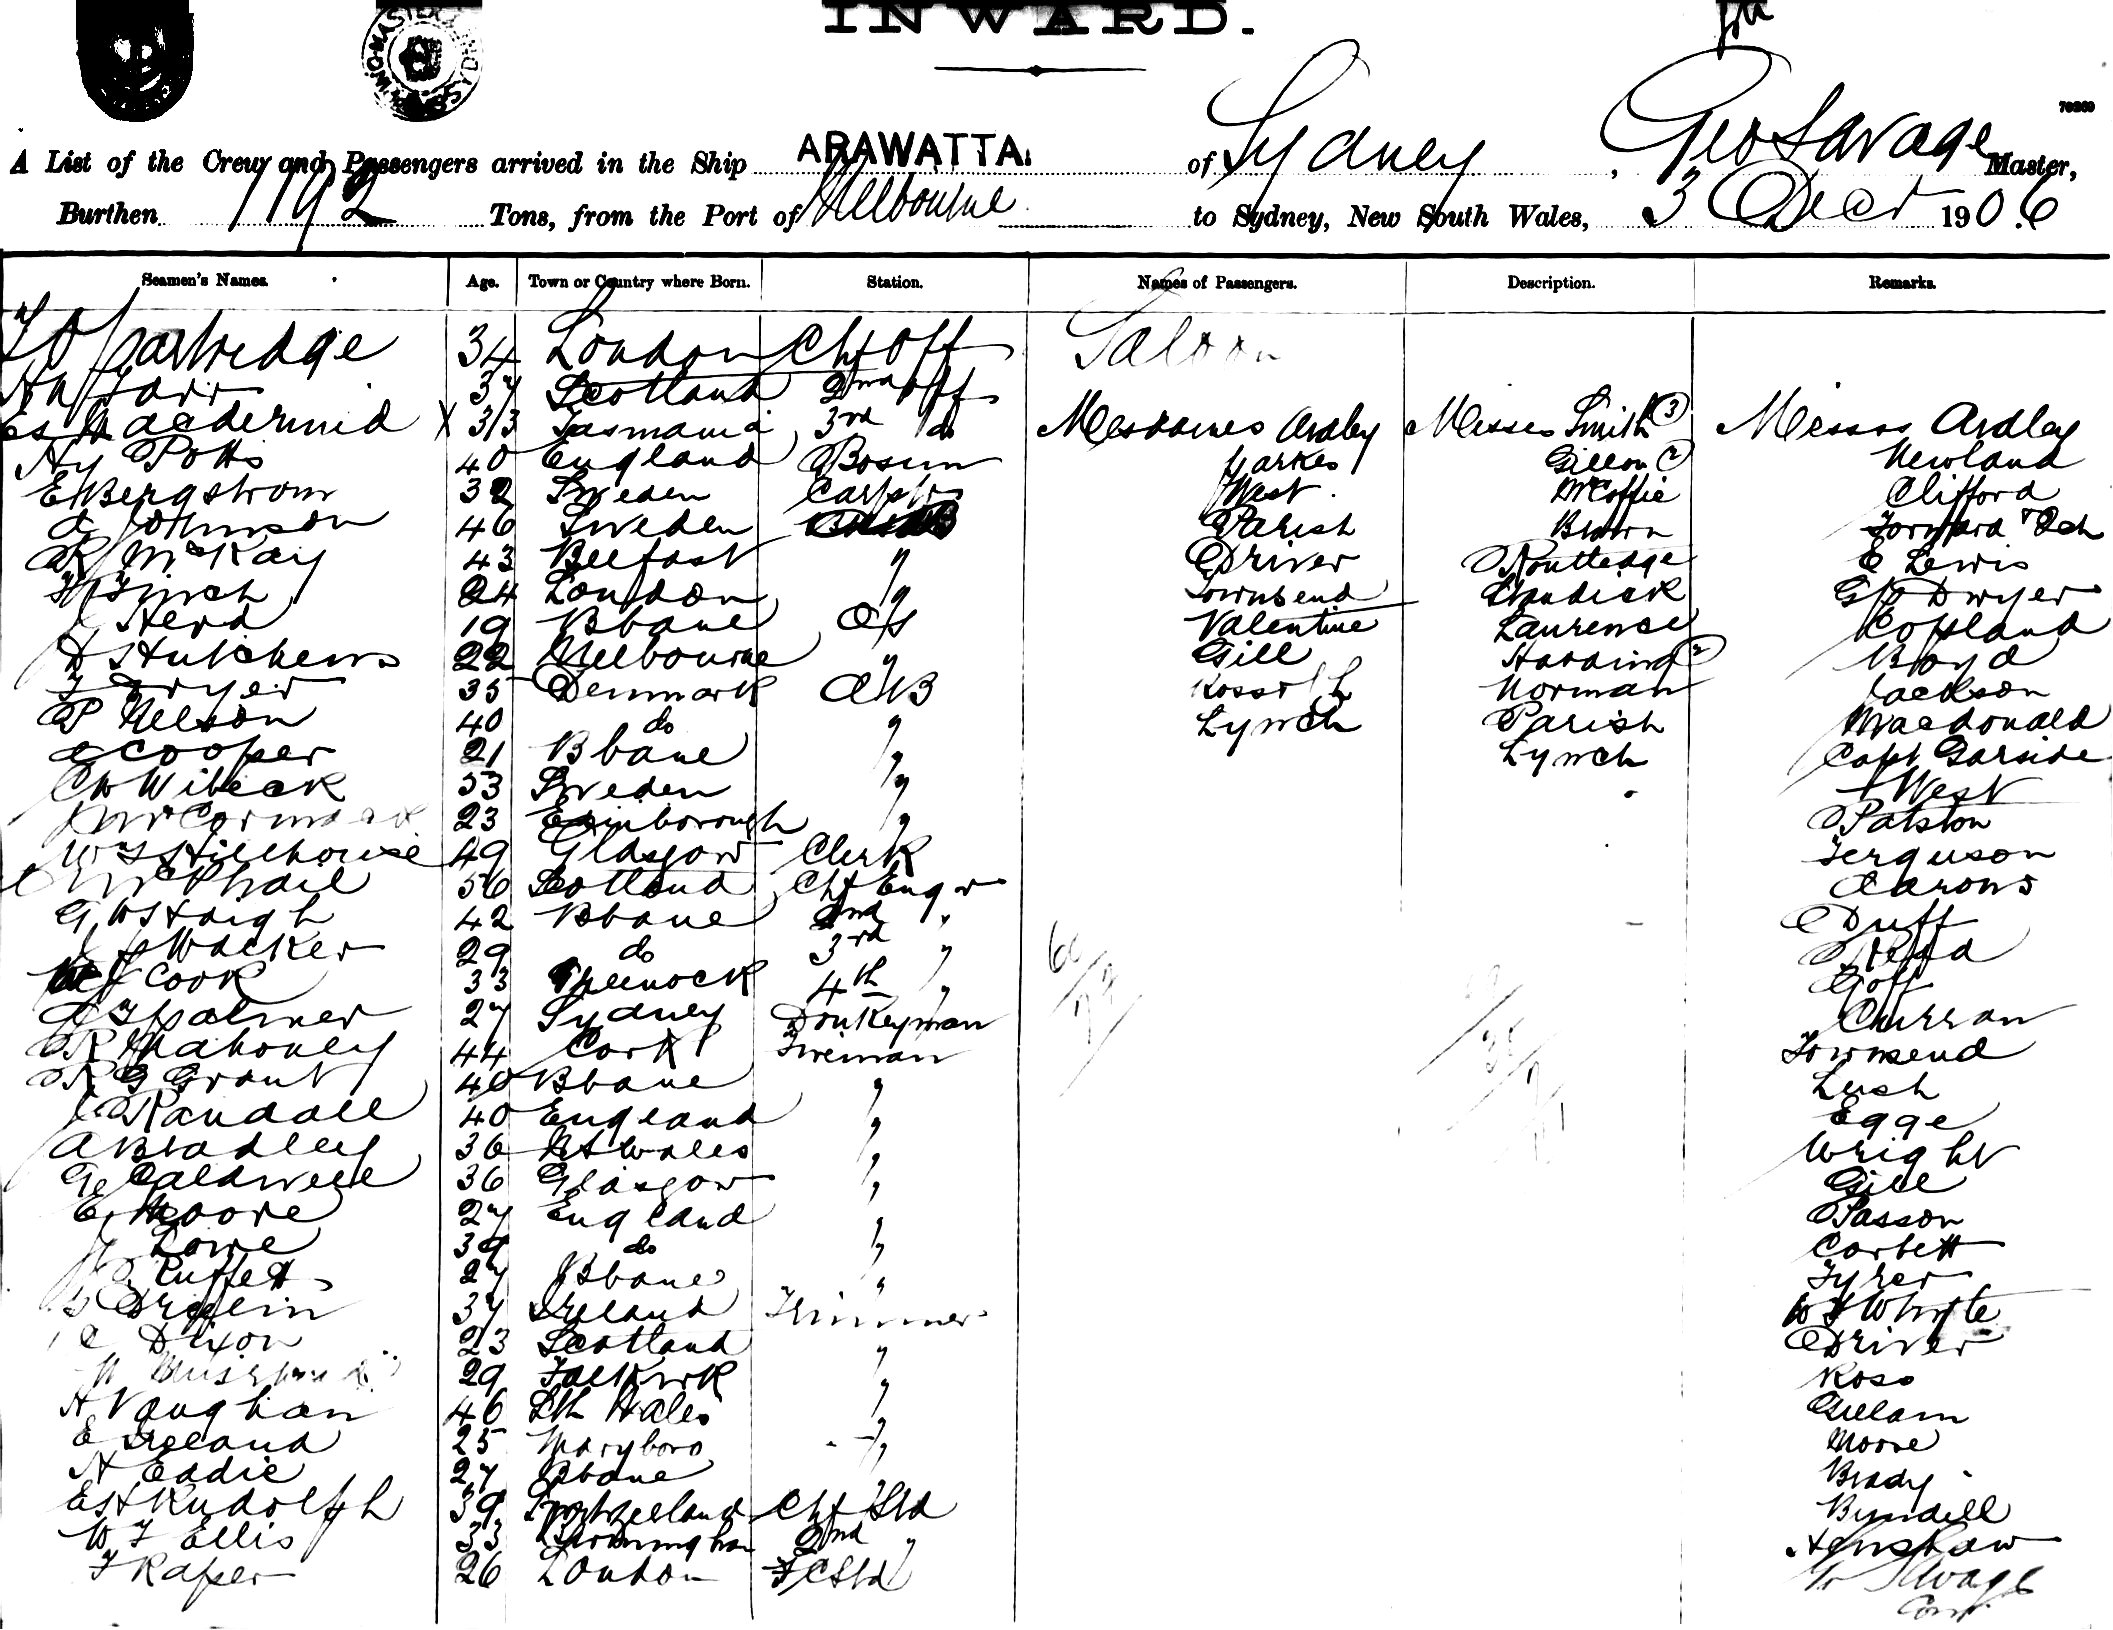 INWARD.
A List of the Crew and Passengers arrived in the Ship ARAWATTA. of Sydney, Geo Savage Master,
Burthen 1192 Tons, from the Port of Melbourne to Sydney, New South Wales, 3 Decr 1906
Seamen's Names. Age. Town or Country where Born. Station. Names of Passengers. Description. Remarks.
Partridge 34 London Chf Off Saloon
37 Scotland 2nd Off
Macdermid X 33 Tasmania 3rd do Mesdames Ardley Misses Smith (3) Messrs Ardley
Hy Potts 40 England Bosun Gillon (2) Newland
E Bergstrom 32 Sweden West McCoffie Clifford
Johnson 46 Sweden Parish Brown
R McKay 43 Belfast " Driver Routledge E Lewis
Finch 24 London " Townsend Dwyer
Herd 19 Bbane O/S Valentine Laurence Copland
D Hutchens 22 Melbourne " Gill Harding (2) Boyd
35 Denmark A/B Norman Jackson
P Nelson 40 do " Lynch Parish Macdonald
A Cooper 21 Bbane " Lynch Capt Garside
53 Sweden " West
McCormack 23 Edinborough "
W Hillhouse 49 Glasgow Clerk Ferguson
McPhail 56 Scotland Chf Engr Aarons
G W Haigh 42 Bbane 2nd " Duff
Walker 29 do 3rd "
Cook 33 Greenock 4th " Goff
Palmer 27 Sydney Donkeyman Curran
R Mahoney 44 Cork Fireman Townsend
R G Grant 40 Bbane " Lush
Randall 40 England " Egge
A Bradley 36 N S Wales " Wright
Geo Caldwell 36 Glasgow " Gill
E Moore 27 England " Passon
Lowe do " Corbett
Ruffett 27 Bbane " Tyrer
37 Ireland Trimmer W F Whyte
Dixon 23 Scotland " Driver
29 Falkirk " Ross
H Vaughan 46 Sth Wales " Gillam
E Ireland 25 Maryboro " Moore
H Eadie 27 Bbane " Brady
E H Rudolph 39 Chf Std Byndell
W F Ellis 33 Birmingham 2nd " Henshaw
F Raper 26 London F C Std